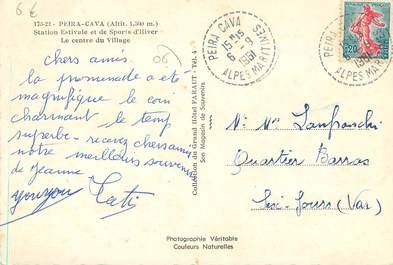 6 €
175-21 - PEIRA-CAVA (Altit. 1.500 m.)
Station Estivale et de Sports d'Hiver
Le centre du Village
(06)
chers amis
la promenade a été
magnifique le coin
charmant le temps
superbe - recevez chers amis
notre meilleurs souvenirs
de Jeanne
youyou Tati
Collection du Grand Hôtel FARAUT - Tél. 4
Son Magasin de Souvenirs
PEIRA CAVA
15H15
6-8
ALPES MARITIMES
PEIRA
ALPES MAR
0,20
M. Mme Lanfranchi
Quartier Barras
Six-Fours (Var)
Photographie Véritable
Couleurs Naturelles